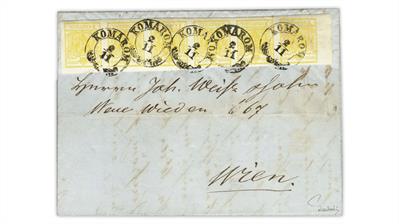 KOMAROM KOMAROM KOMAROM KOMAROM KOMAROM
2/11 2/11 2/11 2/11 2/11
Herrn Joh. Weiß Sohn
Neue Wieden 667
Wien.